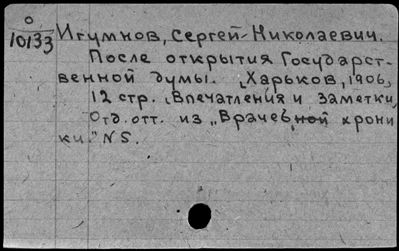 О
10133 Игумнов, Сергей Николаевич.
После открытия Государст-
венной думы. [Харьков, 1906,
12 стр. [Впечатления и заметки,
Отд. отт. из „Врачебной хрони
ки." N 5.